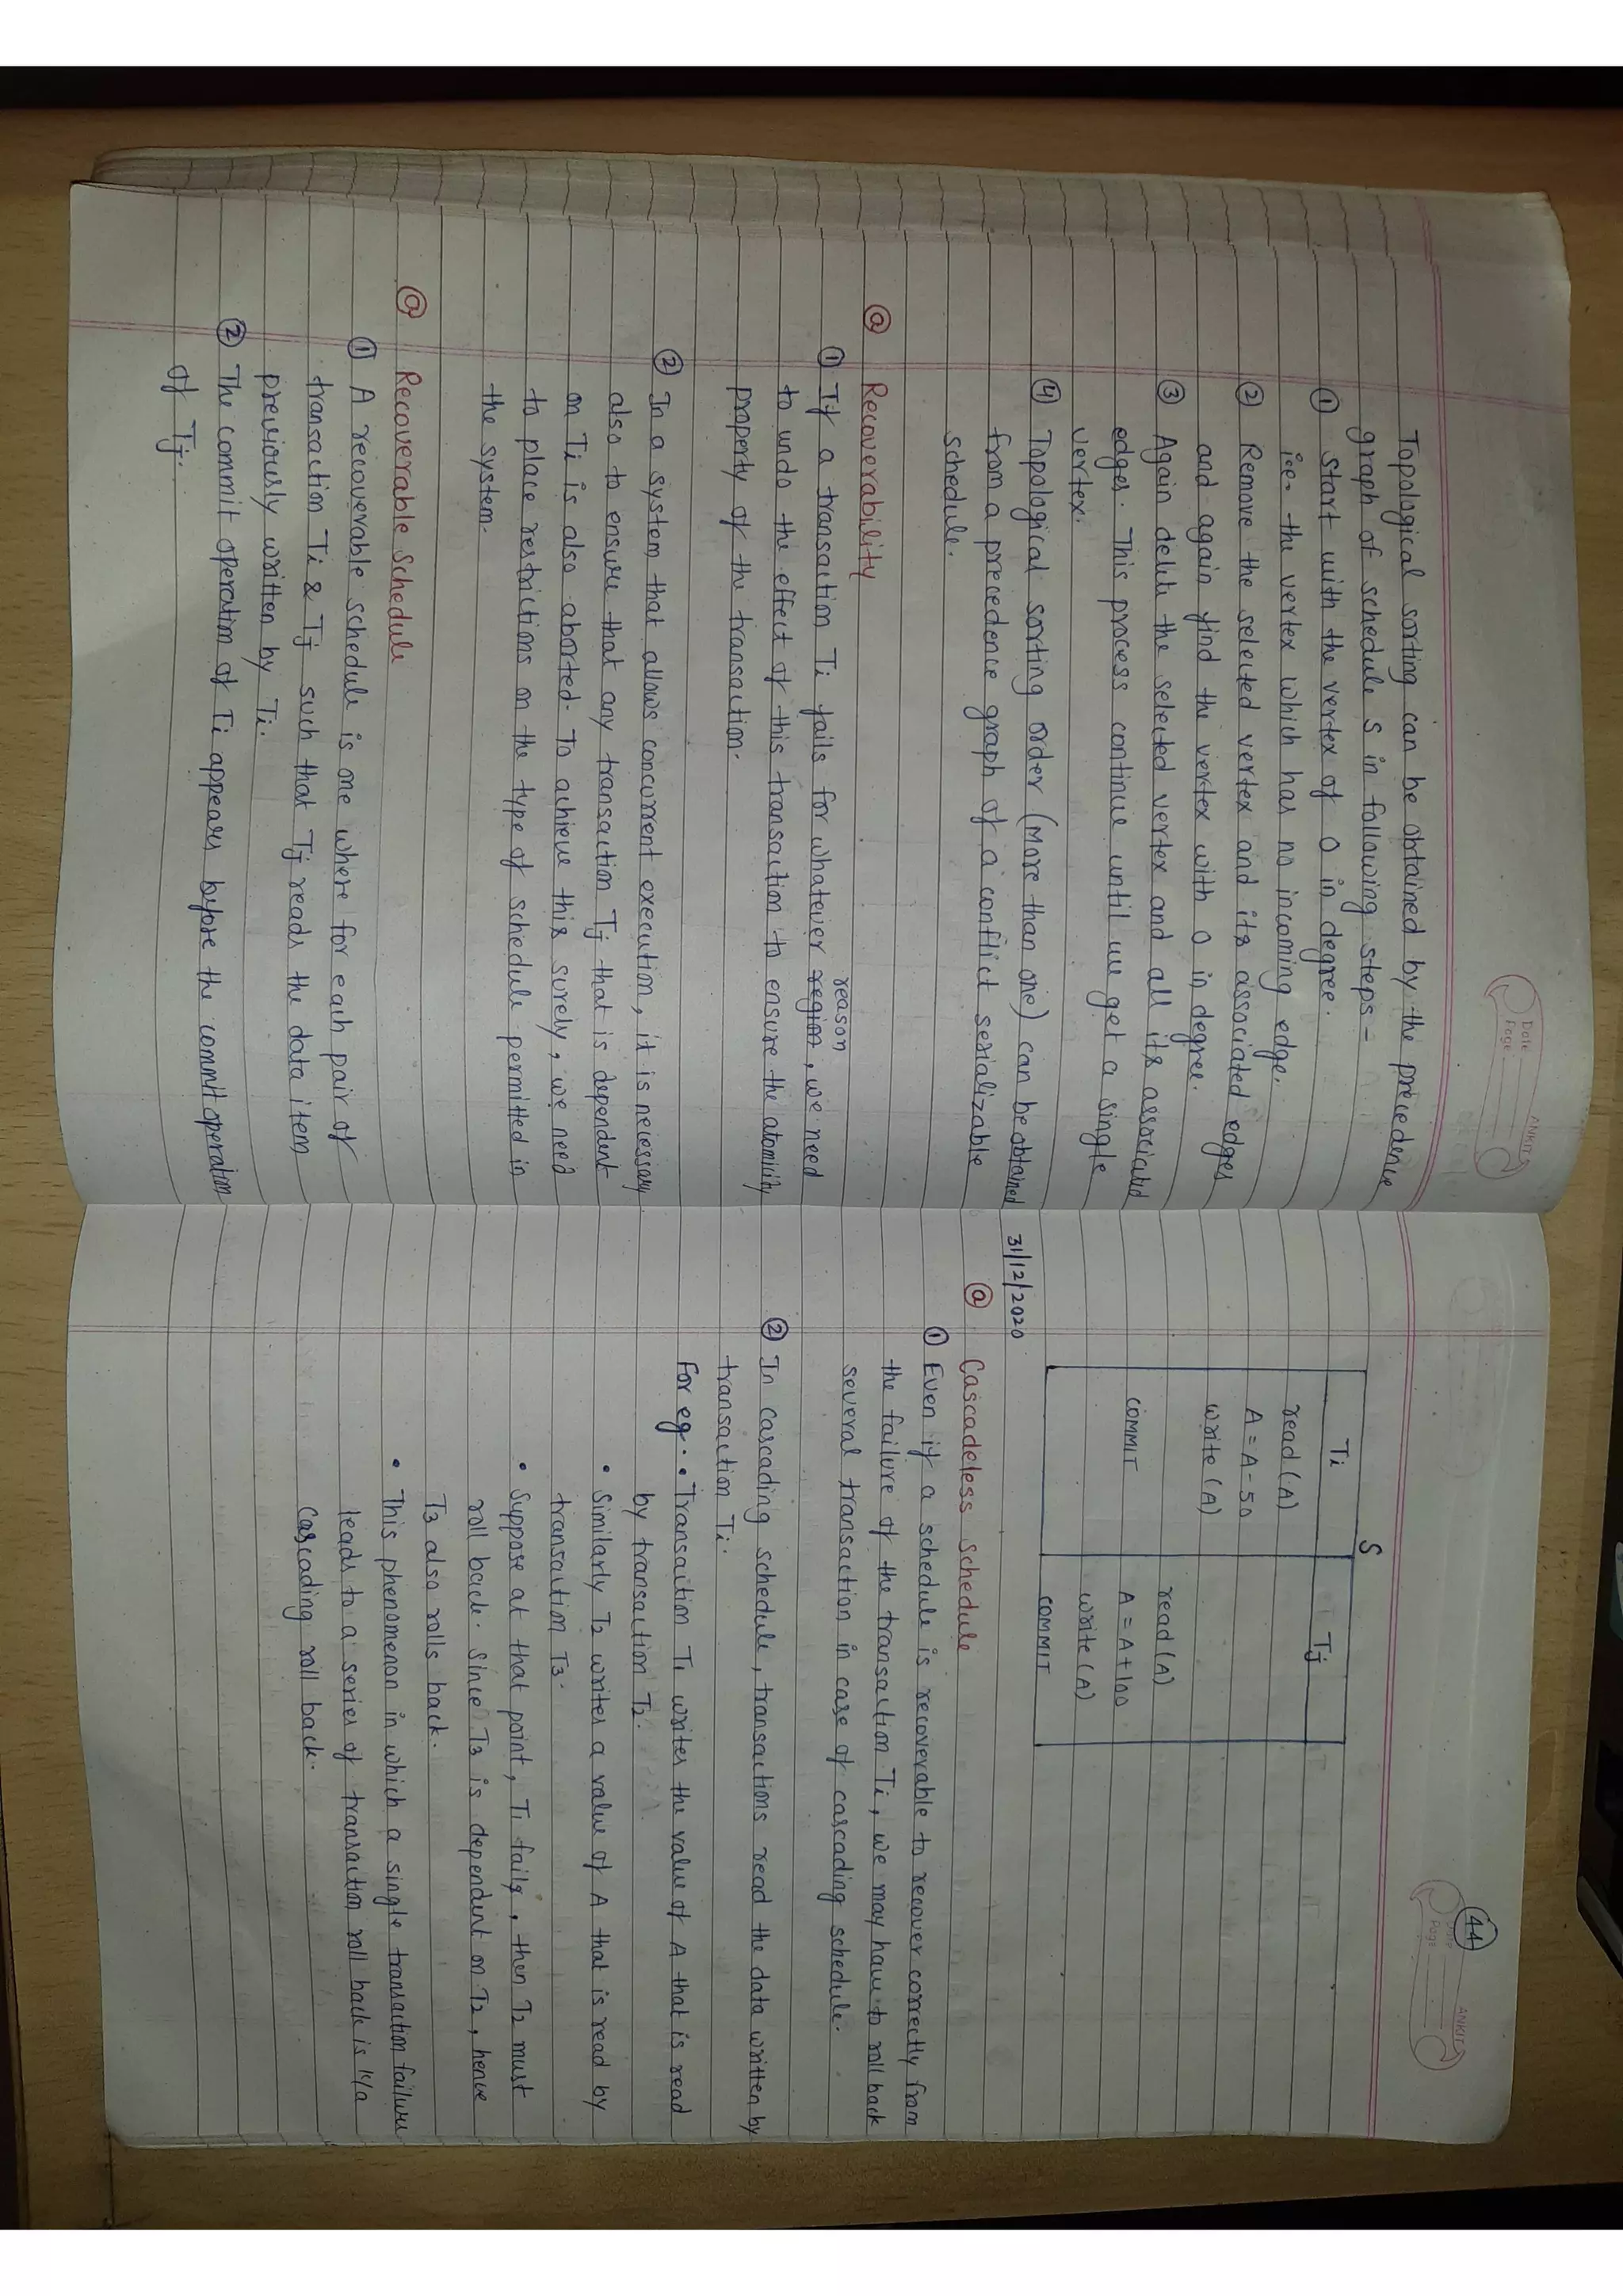 Date
Page
ANKIT
Topological sorting can be obtained by the precedence
graph of schedule S in following steps -
① start with the vertex of 0 in degree.
i.e. the vertex which has no incoming edge.
② Remove the selected vertex and its associated edges
and again find the vertex with 0 in degree.
③ Again delete the selected vertex and all its associated
edges. This process continue until we get a single
vertex.
④ Topological sorting order (More than one) can be obtained
from a precedence graph of a conflict serializable
schedule.
@ Recoverability
reason
① If a transaction Ti fails for whatever region, we need
to undo the effect of this transaction to ensure the atomicity
property of the transaction.
② In a system that allows concurrent execution, it is necessary
also to ensure that any transaction Tj that is dependent
on Ti is also aborted. To achieve this surely, we need
to place restrictions on the type of schedule permitted in
the system.
@ Recoverable Schedule
① A recoverable schedule is one where for each pair of
transaction Ti & Tj such that Tj reads the data item
previously written by Ti.
② The commit operation of Ti appears before the commit operation
of Tj.
44
Date
Page
ANKIT
S
Ti Tj
read (A)
A = A - 50
write (A)
read (A)
COMMIT A = A + 100
write (A)
COMMIT
31/12/2020
@ Cascadeless schedule
① Even if a schedule is recoverable to recover correctly from
the failure of the transaction Ti, we may have to roll back
several transaction in case of cascading schedule.
② In cascading schedule, transactions read the data written by
transaction Ti.
For eg. • Transaction T1 writes the value of A that is read
by transaction T2.
• Similarly T2 writes a value of A that is read by
transaction T3.
• Suppose at that point, T1 fails, then T2 must
roll back. Since T3 is dependent on T2, hence
T3 also rolls back.
• This phenomenon in which a single transaction failure
leads to a series of transaction roll back is k/a
Cascading roll back.